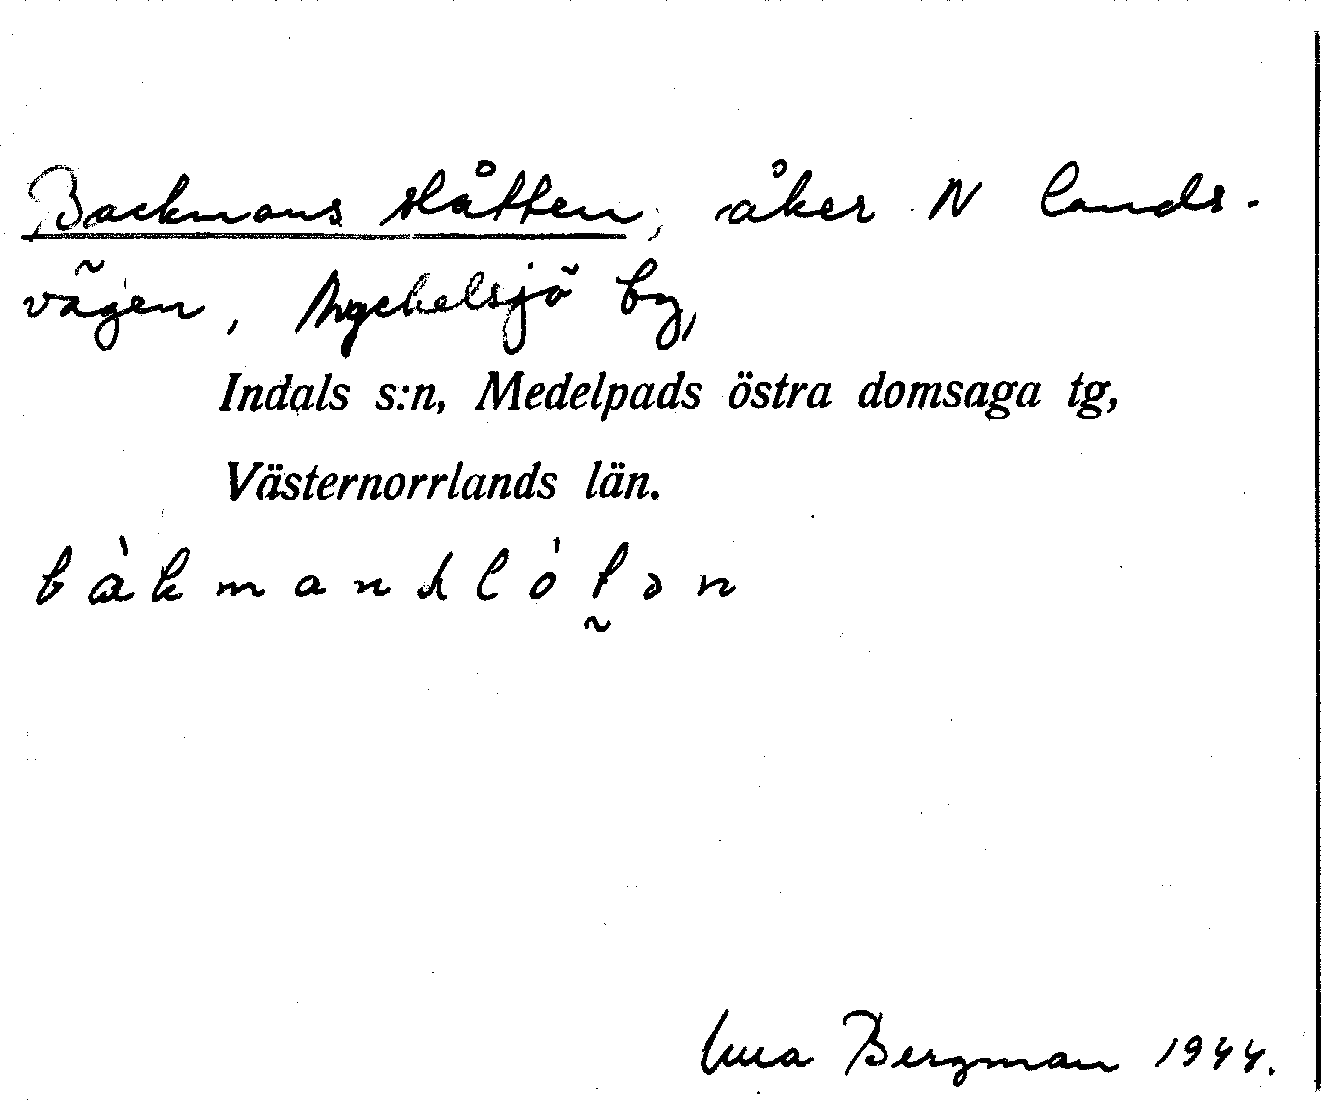 Backmans slåtten, åker N lands-
vägen, Myckelsjö by,
Indals s:n, Medelpads östra domsaga tg,
Västernorrlands län.
bàkmanslótən
Bergman 1944.